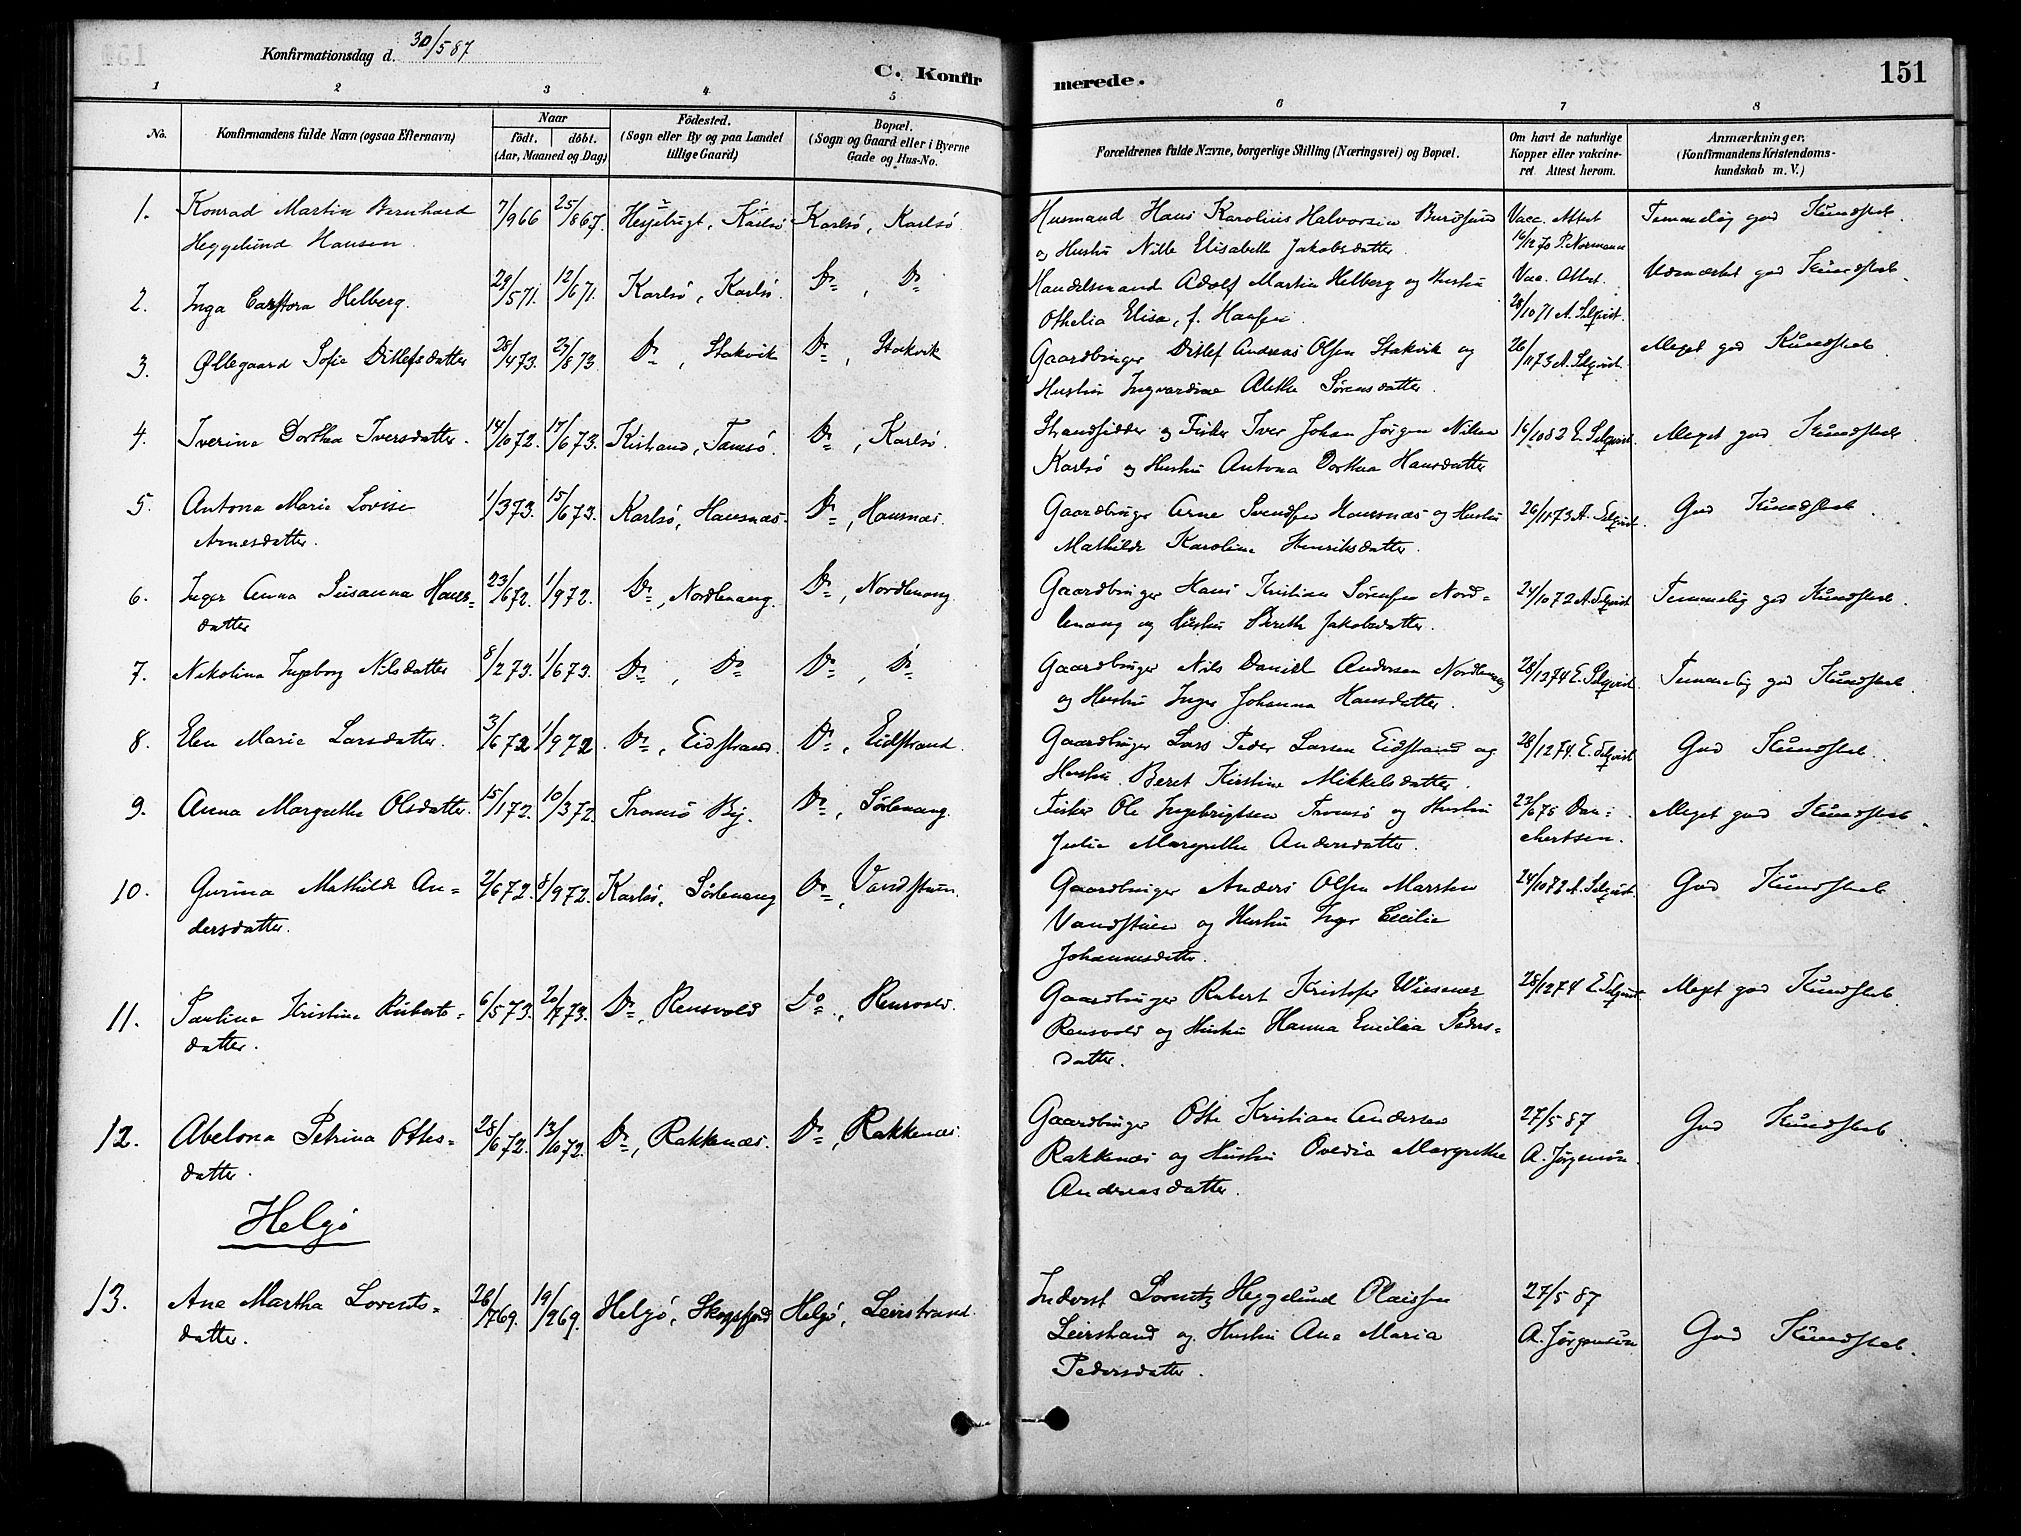 Konfirmationsdag d. 30/5 87
C. Konfir
merede.
151
1 2 3 4 5 6 7 8
No.
Konfirmandens fulde Navn (ogsaa Efternavn)
Naar
födt. döbt.
(Aar, Maaned og Dag)
Födested.
(Sogn eller By og paa Landet
tillige Gaard)
Bopæl.
(Sogn og Gaard eller i Byerne
Gade og Hus-No.
Forældrenes fulde Navne, borgerlige Stilling (Næringsvei) og Bopæl.
Om havt de naturlige
Kopper eller vakcine-
ret. Attest herom.
Anmærkninger,
(Konfirmandens Kristendoms-
kundskab m. V.)
1. Konrad Martin Bernhard 7/9 66 25/8 67. Karlsö Karlsö, Karlsö Husmand Hans Karolius Halvorsen Vacc. Attest Temmelig god Kundskab
Heggelund Hansen. og Hustru Nille Elisabeth Jakobsdatter. 16/12 70 P. Normann
2. Inga Helberg. 29/5 71. 12/6 71. Karlsö, Karlsö. Do, Do Handelsmand Adolf Martin Helberg og Hustru Vac. Attest. Udmærket god Kundskab.
Othelia Elisa, f. Hansen. 28/10 71 A. Selqvist.
3. Øllegaard Sofie Ditlefsdatter 28/4 73. 23/8 73. Do, Stakvik Do, Stakvik Gaardbruger Ditlef Andreas Olsen Stakvik og 26/11 73 A. Selqvist. Meget god Kundskab.
Hustru Ingvardine Alethe Sørensdatter.
4. Iverine Dorthea Iversdatter. 14/10 72. 17/6 73. Kistrand, Tamsö. Do, Karlsö. Strandsidder og Fisker Iver Johan Jørgen Nilsen 16/10 82 E. Selqvist. Meget god Kundskab.
Karlsö og Hustru Antona Dorthea Hansdatter
5. Antona Marie Lovise 1/3 73. 15/6 73. Karlsö, Hansnæs. Do, Hansnæs. Gaardbruger Arne Svendsen Hansnæs og Hustru 26/11 73 A. Selqvist. God Kundskab.
Arnesdatter. Mathilde Karoline Henriksdatter.
6. Inger Anna Susanna Hans- 23/6 72. 1/9 72. Do, Nordlenang. Do, Nordlenang. Gaardbruger Hans Kristian Sörensen Nord- 24/10 72 A. Selqvist Temmelig god Kundskab.
datter lenang og Hustru Berethe Jakobsdatter.
7. Nikolina Ingeborg Nilsdatter 8/2 73. 1/6 73. Do, Do Do, Do Gaardbruger Nils Daniel Andersen Nordlenang 28/12 74 E. Selqvist. Temmelig god Kundskab.
og Hustru Inger Johanna Hansdatter.
8. Elen Marie Larsdatter. 3/6 72 1/9 72. Do, Eidstrand. Do, Eidstrand. Gaardbruger Lars Peder Larsen Eidstrand og 28/12 74. E. Selqvist God Kundskab.
Hustru Beret Kirstine Mikkelsdatter.
9. Anna Margrethe Olsdatter. 15/1 72. 10/3 72. Tromsö By. Do, Sörlenang. Fisker Ole Ingebrigtsen Tromsö og Hustru Dan= Meget god Kundskab.
Julie Margrethe Andersdatter. chertsen.
10. Gurina Mathilde An= 2/6 72. 8/9 72. Karlsö, Sörlenang Do, Vandstuen. Gaardbruger Anders Olsen Vandstuen 24/10 72 A. Selqvist. God Kundskab
dersdatter. og Hustru Inger Cecilie
Johannesdatter.
11. Paulina Kristine Ruberts= 6/5 73. 20/7 73. Do, Rensvold Do, Rensvold. Gaardbruger Rubert Kristofer Wiesener 28/12 74 E. Selqvist Meget god Kundskab.
datter. Rensvold og Hustru Hanna Emilia Peders=
datter.
12. Abelona Petrina Ottes= 28/6 72. 13/10 72. Do, Rakkenæs. Do, Rakkenæs. Gaardbruger Otte Kristian Andersen 27/5 87 God Kundskab.
datter. Rakkenæs og Hustru Ovedia Margrethe A. Jørgensen.
Andreasdatter.
Helgö
13. Ane Martha Lorents= 26/7 69. 19/9 69. Helgö, Skogsfjord Helgö, Leirstrand. Inderst Lorentz Heggelund Olaissen 27/5 87
datter. Leirstrand og Hustru Ane Maria A. Jørgensen God Kundskab.
Pedersdatter.